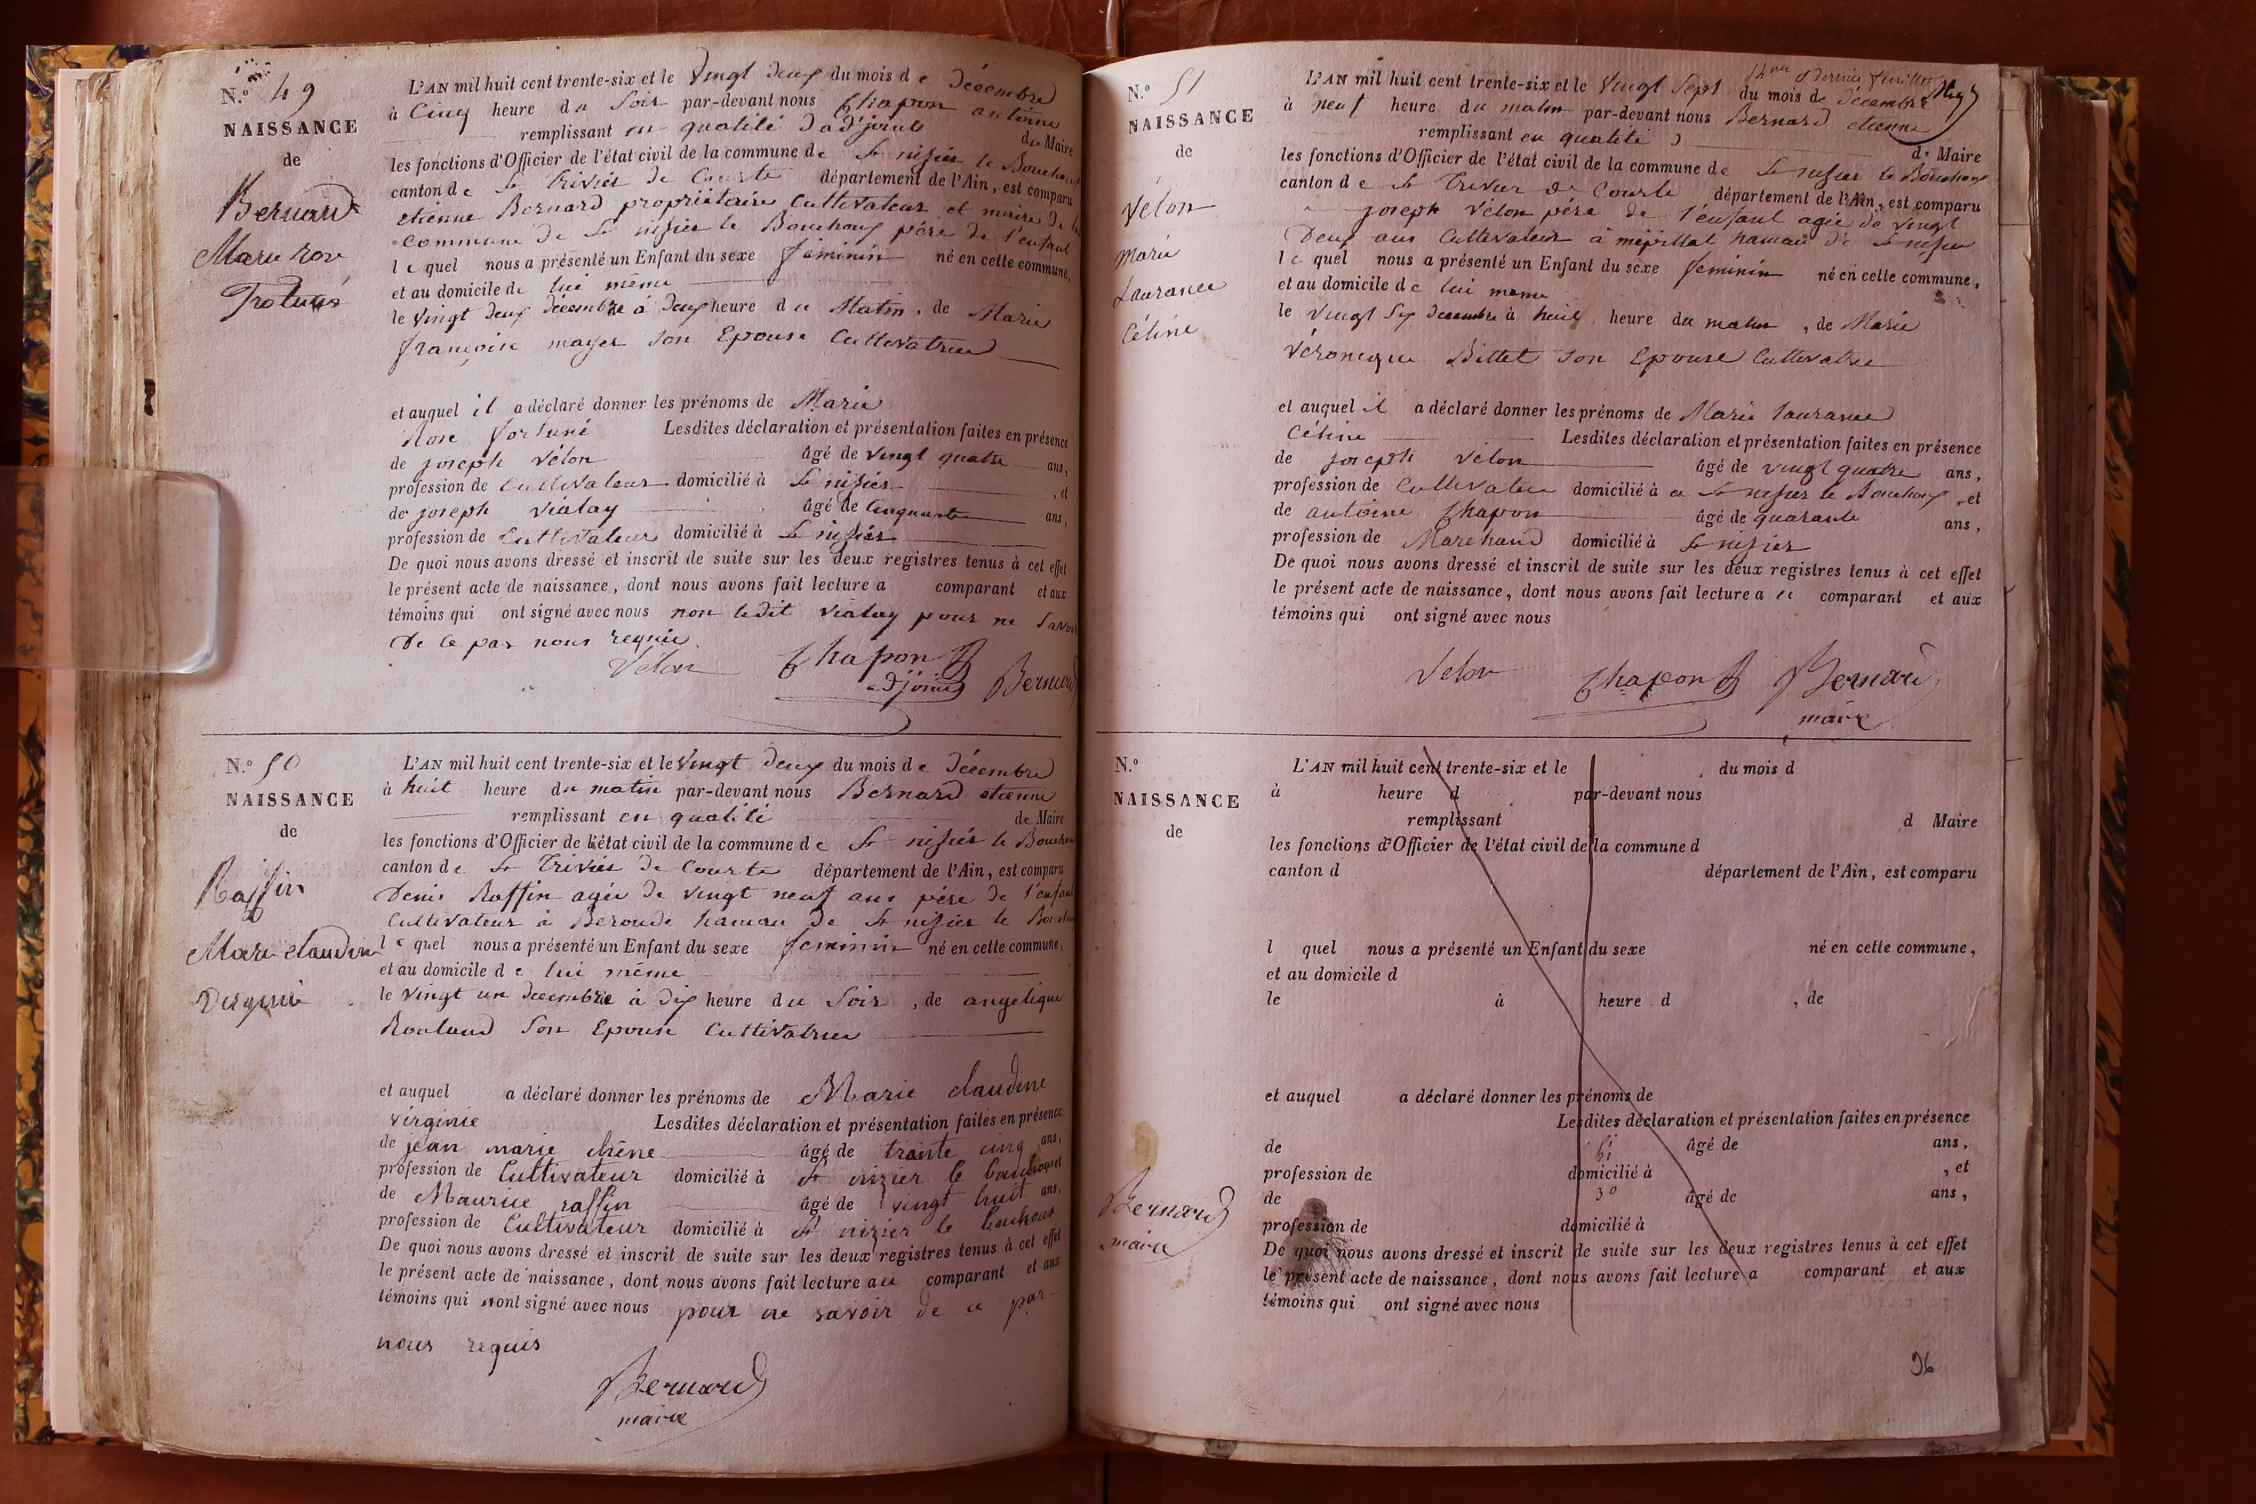 N.º 49
NAISSANCE
de
Bernard
Marie Rose
L'AN mil huit cent trente-six et le Vingt deux du mois de Décembre
à Cinq heure du Soir par-devant nous Chapon antoine
remplissant en qualité d'adjoint du Maire
les fonctions d'Officier de l'état civil de la commune de St nisier le Bouchoux
canton de St Trivier de Courte département de l'Ain, est comparu
etienne Bernard propriétaire Cultivateur et maire de la
Commune de St nisier le Bouchoux père de l'enfant
lequel nous a présenté un Enfant du sexe féminin né en cette commune,
et au domicile de lui même
le Vingt deux décembre à deux heure du Matin, de Marie
françoise mayer son Epouse Cultivatrice
et auquel il a déclaré donner les prénoms de Marie
Rose fortuné Lesdites déclaration et présentation faites en présence
de joseph Vélon âgé de vingt quatre ans,
profession de Cultivateur domicilié à St nisier, et
de joseph vialay âgé de Cinquante ans,
profession de Cultivateur domicilié à St nisier
De quoi nous avons dressé et inscrit de suite sur les deux registres tenus à cet effet
le présent acte de naissance, dont nous avons fait lecture a comparant et aux
témoins qui ont signé avec nous non ledit vialay pour ne savoir
de ce par nous requis
Velon Chapon Bernard
adjoint
N.º 50
NAISSANCE
de
Raffin
Marie claudine
Virginie
L'AN mil huit cent trente-six et le Vingt deux du mois de décembre
à huit heure du matin par-devant nous Bernard etienne
remplissant en qualité de Maire
les fonctions d'Officier de l'état civil de la commune de St nisier le Bouchoux
canton de St Trivier de Courte département de l'Ain, est comparu
Denis Raffin agée de vingt neuf ans père de l'enfant
Cultivateur à Beroude hameau de St nisier le Bouchoux
lequel nous a présenté un Enfant du sexe feminin né en cette commune,
et au domicile de lui même
le vingt un decembre à dix heure du Soir, de angelique
Rouland Son Epouse Cultivatrice
et auquel a déclaré donner les prénoms de Marie claudine
virginie Lesdites déclaration et présentation faites en présence
de jean marie chêne âgé de trante cinq ans,
profession de Cultivateur domicilié à St nizier le bouchoux et
de Maurice raffin âgé de vingt huit ans,
profession de Cultivateur domicilié à St nizier le bouhoux
De quoi nous avons dressé et inscrit de suite sur les deux registres tenus à cet effet
le présent acte de naissance, dont nous avons fait lecture au comparant et aux
témoins qui nont signé avec nous pour ne savoir de ce par
nous requis
Bernard
maire
14me & Dernier feuillet
N.º 51
NAISSANCE
de
Vélon
Marie
Laurance
Céline
L'AN mil huit cent trente-six et le Vingt Sept du mois de décembre
à neuf heure du matin par-devant nous Bernard etienne
remplissant en qualité d de Maire
les fonctions d'Officier de l'état civil de la commune de St nisier le Bouchoux
canton de St Trivier de Courte département de l'Ain, est comparu
joseph Vélon père de l'enfant agée de vingt
Deux ans Cultivateur à mépillat hameau de St nisier
lequel nous a présenté un Enfant du sexe feminin né en cette commune,
et au domicile de lui meme
le Vingt Sep decembre à huit heure du matin, de Marie
véronique Billet son Epouse Cultivatrice
et auquel il a déclaré donner les prénoms de Marie Laurance
Céline Lesdites déclaration et présentation faites en présence
de joseph vélon âgé de vingt quatre ans,
profession de Cultivateur domicilié à a St nisier le Bouchoux, et
de antoine Chapon âgé de quarante ans,
profession de Marchand domicilié à St nisier
De quoi nous avons dressé et inscrit de suite sur les deux registres tenus à cet effet
le présent acte de naissance, dont nous avons fait lecture a u comparant et aux
témoins qui ont signé avec nous
Velon Chapon Bernard
maire
N.º
NAISSANCE
de
L'AN mil huit cent trente-six et le du mois d
à heure d par-devant nous
remplissant d Maire
les fonctions d'Officier de l'état civil de la commune d
canton d département de l'Ain, est comparu
l quel nous a présenté un Enfant du sexe né en cette commune,
et au domicile d
le à heure d , de
et auquel a déclaré donner les prénoms de
Lesdites déclaration et présentation faites en présence
de âgé de ans,
profession de domicilié à , et
de âgé de ans,
profession de domicilié à
De quoi nous avons dressé et inscrit de suite sur les deux registres tenus à cet effet
le présent acte de naissance, dont nous avons fait lecture a comparant et aux
témoins qui ont signé avec nous
Bernard
maire
96